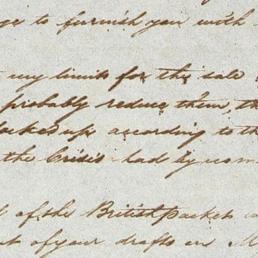 ge to furnish you with
my limits for the sale
probably reduce them, th
locked up according to th
the Crisis had by com
of the British packet
t of your drafts on M